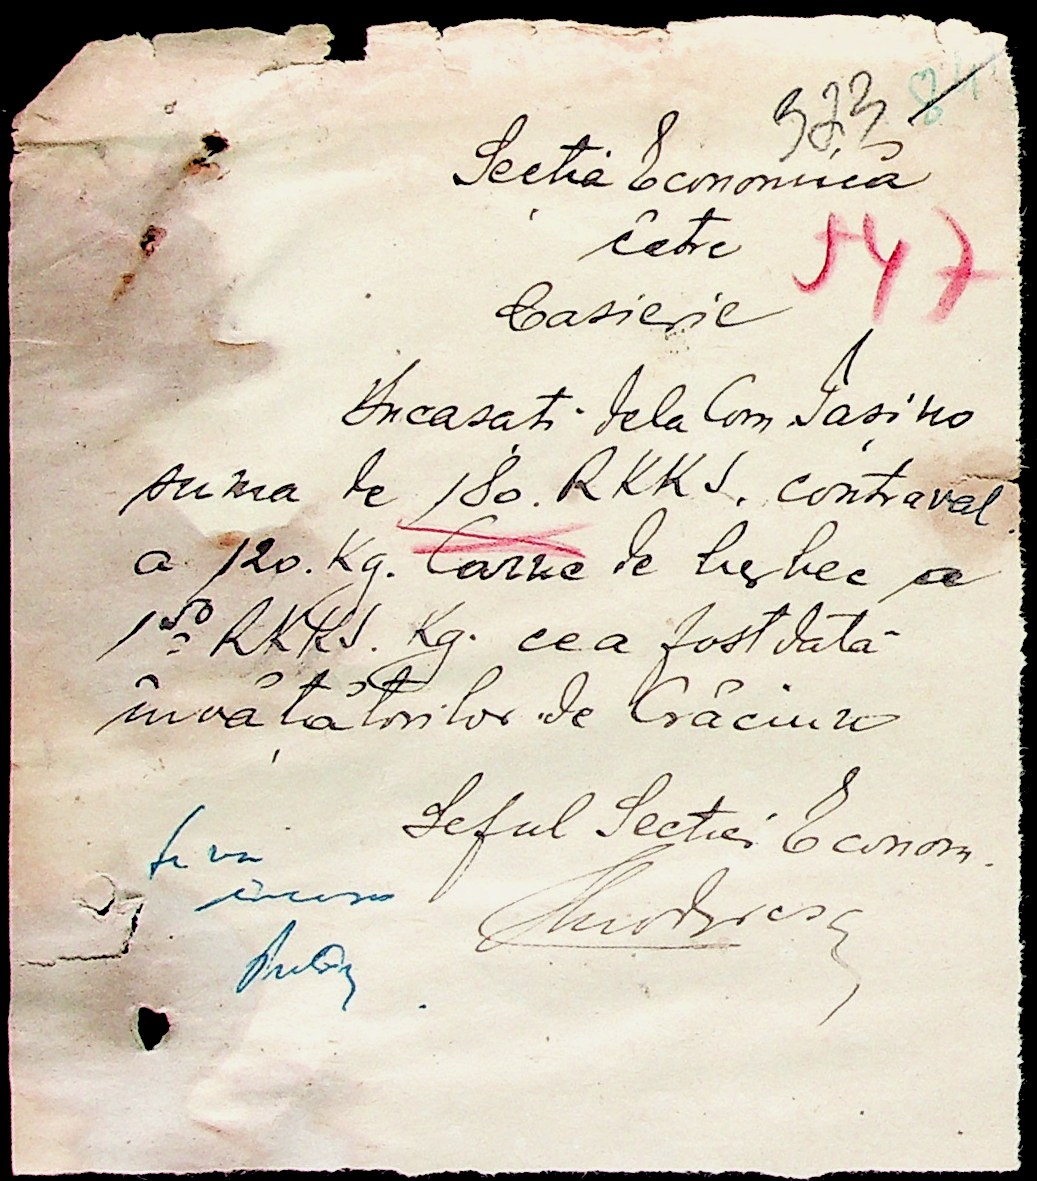 373
84
Secția Economică
către
547
Casierie
Incasati dela Com. Iasino
suma de 180. RKKS. contraval.
a 120. Kg. Carne de berbec a
1,50 RKKS. Kg. ce a fost dată
învățătorilor de Crăciun
Seful Sectiei Econom.
Se va